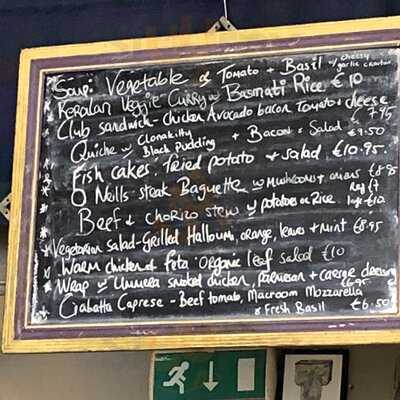 Soup: Vegetable & Tomato + Basil w cheesy garlic crouton
Keralan Veggie Curry w Basmati Rice €10
Club sandwich - chicken Avocado bacon Tomato + cheese
€7.95
Quiche w Clonakilty Black Pudding + Bacon & Salad €9.50
Fish cakes. Fried potato + salad €10.95.
O'Neills steak Baguette w Mushrooms + onions €8.95
Beef & chorizo stew w potatoes or Rice reg €7 large €10
Vegetarian Salad - Grilled Halloumi, orange, leaves + Mint €8.95
Warm chicken & Feta. Organic leaf Salad €10
Wrap w Ummera smoked chicken, parmesan + caesar dressing
€6.95
Ciabatta Caprese - Beef tomato, Macroom Mozzarella
& Fresh Basil €6.50